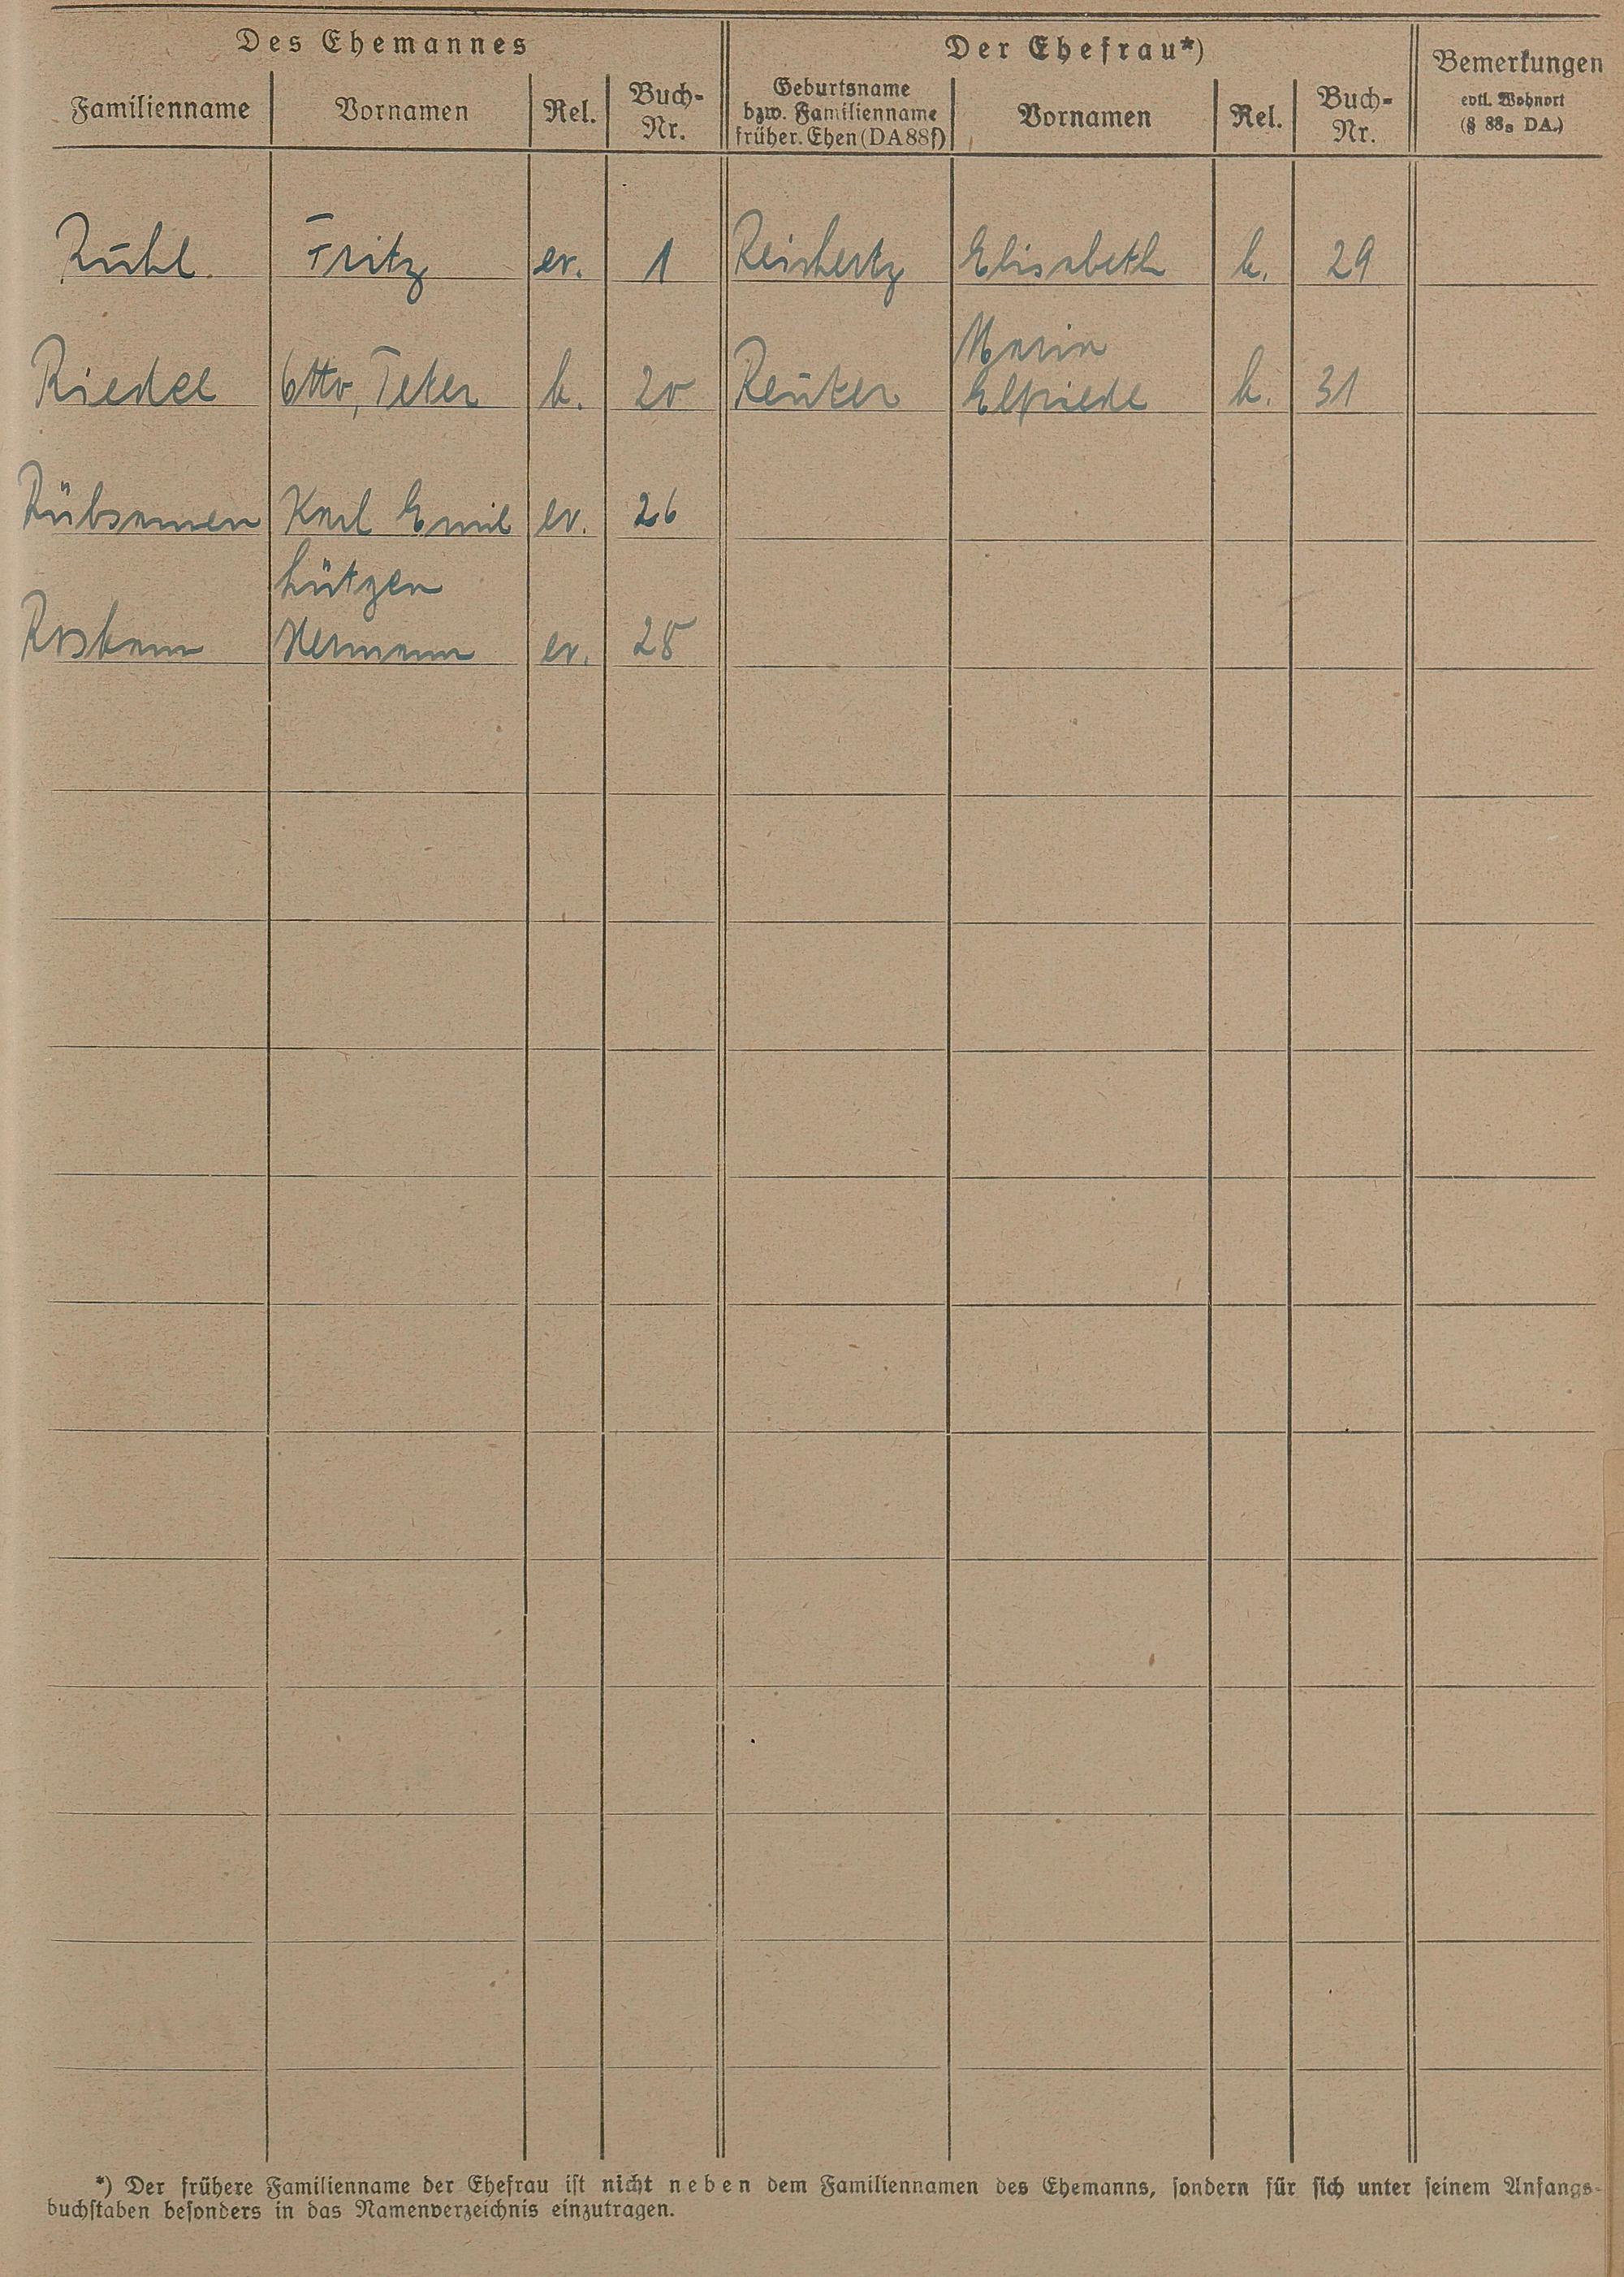 Des Ehemannes
Der Ehefrau*)
Bemerkungen
evtl. Wohnort
(§ 88₈ DA.)
Familienname
Vornamen
Rel.
Buch-
Nr.
Geburtsname
bzw. Familienname
früher. Ehen (DA 88f)
Vornamen
Rel.
Buch-
Nr.
Rühl. Fritz ev. 1 Reichertz Elisabeth k. 29
Maria
Riedel Otto, Peter k. 20 Reuter Elfriede k. 31
Rübsamen Karl Emil ev. 26
Hermann ev. 28
*) Der frühere Familienname der Ehefrau ist nicht neben dem Familiennamen des Ehemanns, sondern für sich unter seinem Anfangs-
buchstaben besonders in das Namenverzeichnis einzutragen.